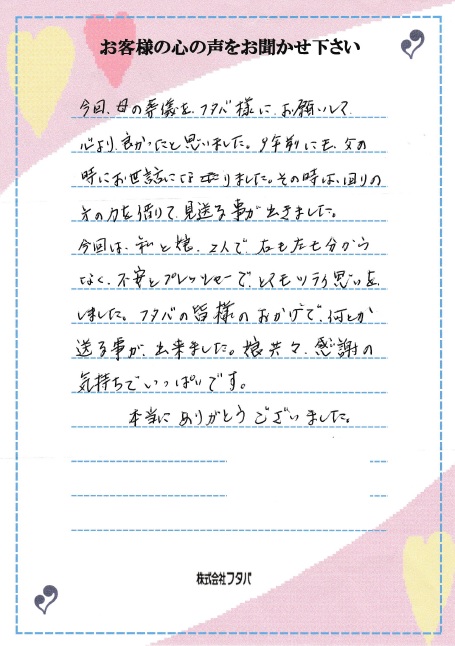 お客様の心の声をお聞かせ下さい
今回、母の葬儀を、フタバ様に、お願いして
心より、良かったと思いました。9年前にも、父の
時にお世話になりました。その時は、回りの
方の力を借りて、見送る事が、出きました。
今回は、私と娘、2人で、右も左も分から
なく、不安とプレッシャーで、とてもツライ思いを、
しました。フタバの皆様のおかげで、何とか
送る事が、出来ました。娘共々、感謝の
気持ちでいっぱいです。
本当に ありがとう ございました。
株式会社フタバ